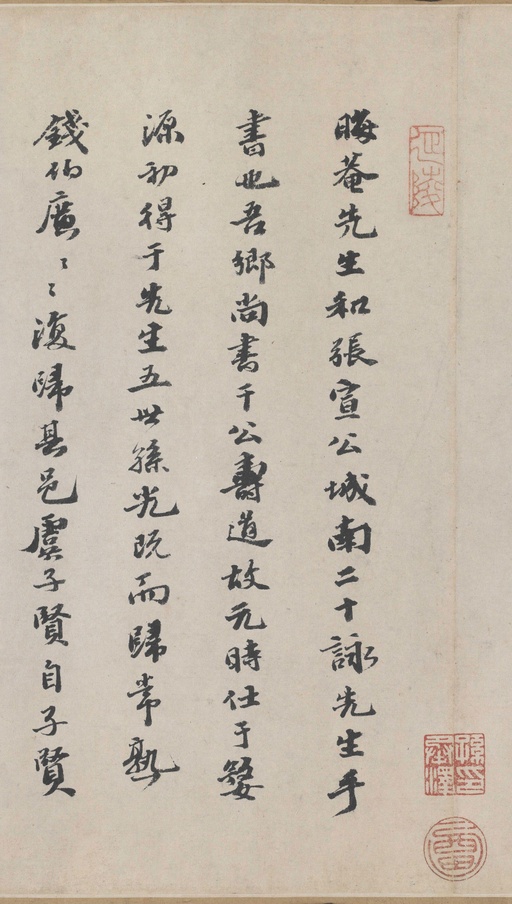 延陵
晦菴先生和張宣公城南二十詠先生手
書也吾鄉尚書干公壽道故元時仕于婺
源初得于先生五世孫光既而歸常熟
錢伯廣〻〻復歸其邑虞子賢自子賢
孫印承澤